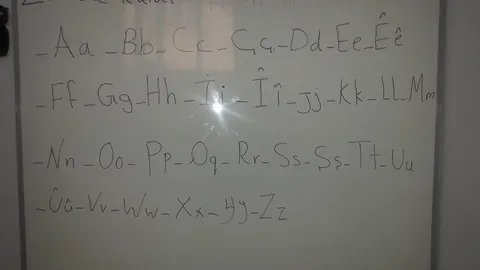 _Aa _Bb_Cc_Çç_Dd_Ee_Êê
_Ff_Gg_Hh_İi_Îî_Jj_Kk_LL_Mm
_Nn_Oo_Pp_Qq_Rr_Ss_Şş_Tt_Uu
_Ûû_Vv_Ww_Xx_Yy_Zz